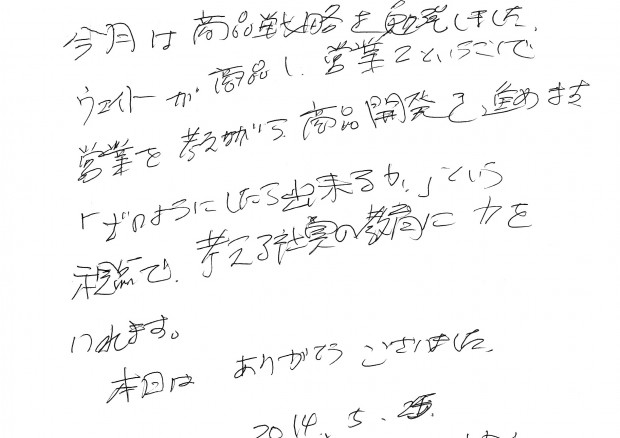 今月は商品戦略を勉強しました。
ウェイトが商品1、営業2ということで
営業を考えながら商品開発を進めます
「どのようにしたら出来るか、」という
視点で、考える社員の教育に力を
いれます。
本日は ありがとうございました。
2014.5.25.